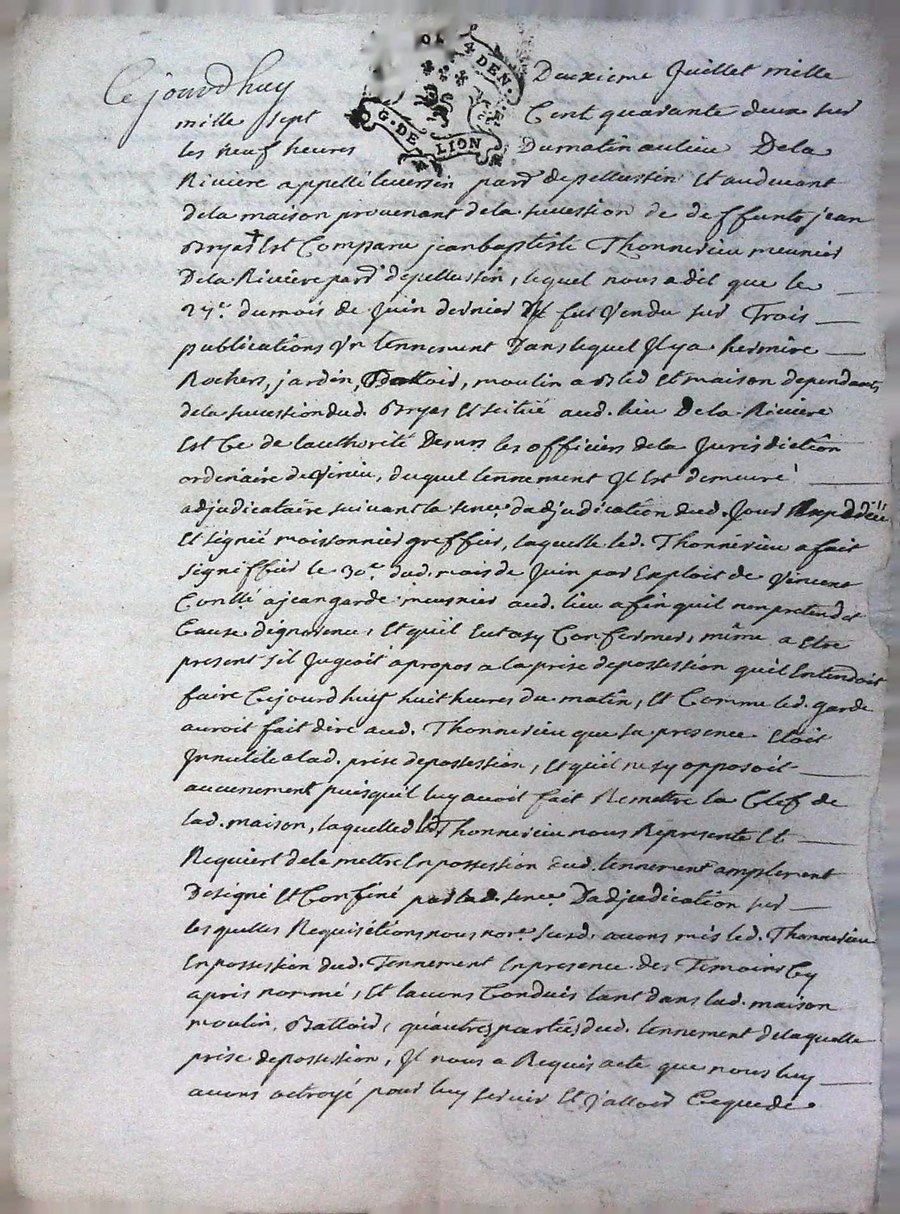 Ce jourdhuy Deuxieme Juillet mille
mille sept Cent quarante deux sur
les neuf heures Du matin au lieu De la
4 DEN.
G. DE LION
Riviere appellé parr.e de pellussin Et au devant
de la maison provenant de la succession de deffunts jean
Bryas Est Comparu jean baptiste Thonnerieu meunier
De la Riviere parr.e de pellussin, lequel nous a dit que le
27.e du mois de Juin dernier Il fut vendu sur Trois
publications Un tennement Dans lequel Il y a hermire
Rochers, jardin, Battoir, moulin a Bled Et maison dependants
de la succession dud. Bryas Et scitué aud. lieu De la Riviere
Est Ce de lauthorité De mrs les officiers de la Jurisdiction
ordinaire de Virieu, duquel tennement Il Est demeuré
adjudicataire suivant la senc.e dadjudication dud. Jour Expediée
Et signée moissonnier greffier, laquelle led. Thonnerieu a fait
signiffier le 30.e dud. mois de Juin par Exploit de Vincent
a jean garde meusnier aud. lieu afin quil nen pretendit
Cause dignorence, Et quil Eut a sy Conformer, même a Etre
present sil Jugeoit a propos a la prise de possession quil Entendoit
faire Cejourdhuy huit heures du matin, Et Comme led. garde
auroit fait dire aud. Thonnerieu que sa presence Etoit
Innutile a lad. prise de possession, Et quil ne sy opposoit
aucunement puisquil luy avoit fait Remettre la Clef de
lad. maison, laquelle led. Thonnerieu nous Represente Et
Requiert de le mettre En possession dud. tennement amplement
Designé Et Confiné par lad. senc.e Dadjudication sur
lesquelles Requisitions nous no.re susd. avons mis led. Thonnerieu
En possession dud. Tennement En presence des Temoins Cy
apres nommé, Et lavons Conduis tant dans lad. maison
moulin, Battoir, quautres parties dud. tennement de laquelle
prise de possession, Il nous a Requis acte que nous luy
avons octroyé pour luy servir Et valloir Ce que de